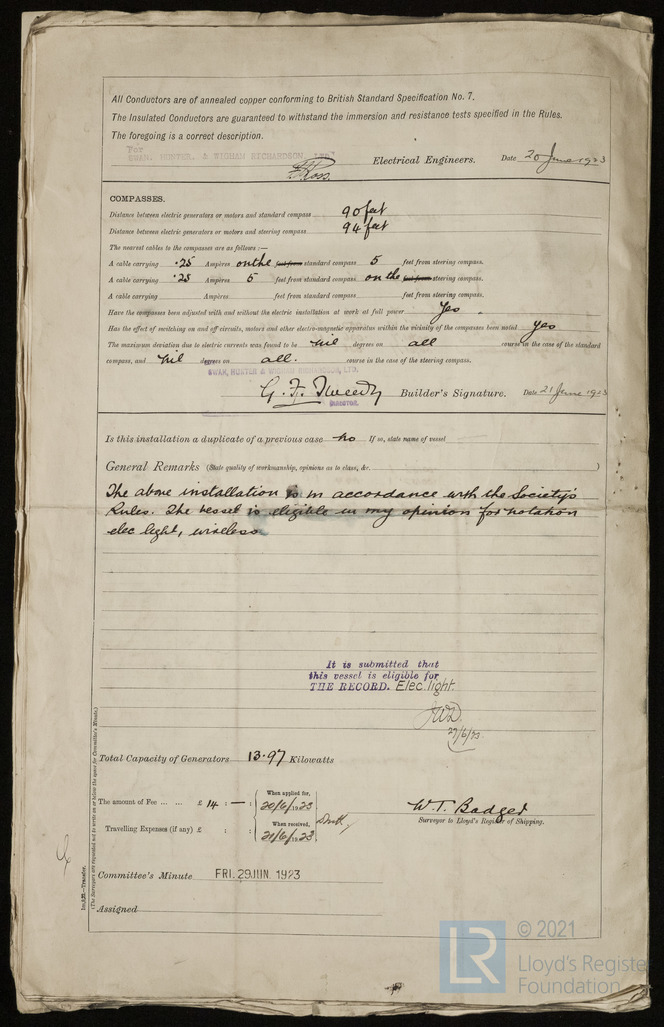 All Conductors are of annealed copper conforming to British Standard Specification No. 7.
The Insulated Conductors are guaranteed to withstand the immersion and resistance tests specified in the Rules.
The foregoing is a correct description.
For
SWAN, HUNTER, & WIGHAM RICHARDSON, LTD.
Ross. Electrical Engineers. Date 20 June 1923
COMPASSES.
Distance between electric generators or motors and standard compass 90 feet
Distance between electric generators or motors and steering compass 94 feet
The nearest cables to the compasses are as follows :—
A cable carrying .25 Ampères on the feet from standard compass 5 feet from steering compass.
A cable carrying .25 Ampères 5 feet from standard compass on the feet from steering compass.
A cable carrying Ampères feet from standard compass feet from steering compass.
Have the compasses been adjusted with and without the electric installation at work at full power Yes
Has the effect of switching on and off circuits, motors and other electro-magnetic apparatus within the vicinity of the compasses been noted yes
The maximum deviation due to electric currents was found to be nil degrees on all course in the case of the standard
compass, and nil degrees on all. course in the case of the steering compass.
SWAN, HUNTER & WIGHAM RICHARDSON, LTD.
G. F. Tweedy Builder's Signature. Date 21 June 1923
DIRECTOR.
Is this installation a duplicate of a previous case no If so, state name of vessel
General Remarks (State quality of workmanship, opinions as to class, &c. )
The above installation is in accordance with the Society's
Rules. The vessel is eligible in my opinion for notation
elec light, wireless
It is submitted that
this vessel is eligible for
THE RECORD. Elec. light.
JWD.
27/6/23
Total Capacity of Generators 13.97 Kilowatts
The amount of Fee ... ... £ 14 : — :
When applied for,
20/6/1923
Travelling Expenses (if any) £ : :
When received,
21/6/1923
W. T. Badger
Surveyor to Lloyd's Register of Shipping.
Committee's Minute FRI. 29 JUN. 1923
Assigned
(The Surveyors are requested not to write on or below the space for Committee's Minute.)
© 2021
LR
Lloyd's Register
Foundation